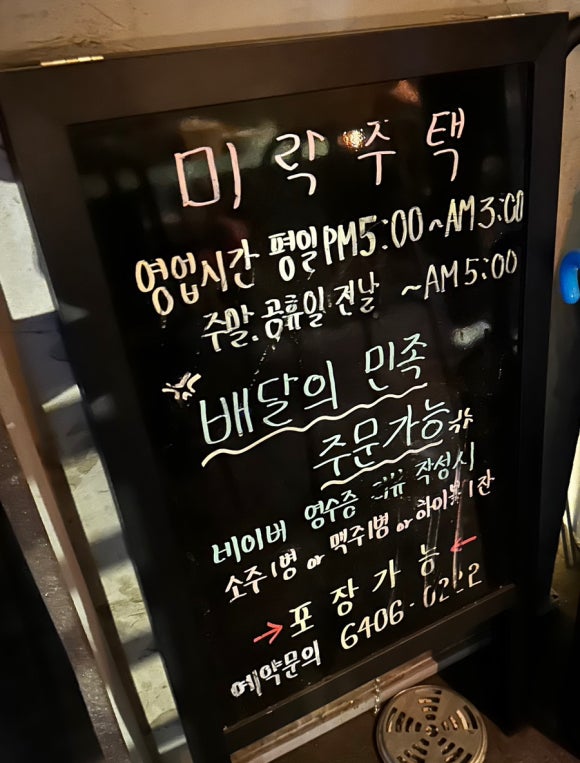 미락주택
영업시간 평일 PM5:00 ~ AM3:00
주말.공휴일 전날 ~AM5:00
배달의 민족
주문가능
네이버 영수증 리뷰 작성시
소주1병 or 맥주1병 or 하이볼1잔
→ 포장가능 ←
예약문의 6406-0222